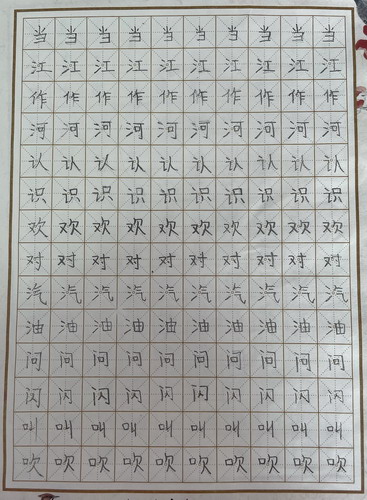 当当当当当当当当当当
江江江江江江江江江江
作作作作作作作作作作
河河河河河河河河河河
认认认认认认认认认认
识识识识识识识识识识
欢欢欢欢欢欢欢欢欢欢
对对对对对对对对对对
汽汽汽汽汽汽汽汽汽汽
油油油油油油油油油油
问问问问问问问问问问
闪闪闪闪闪闪闪闪闪闪
叫叫叫叫叫叫叫叫叫叫
吹吹吹吹吹吹吹吹吹吹